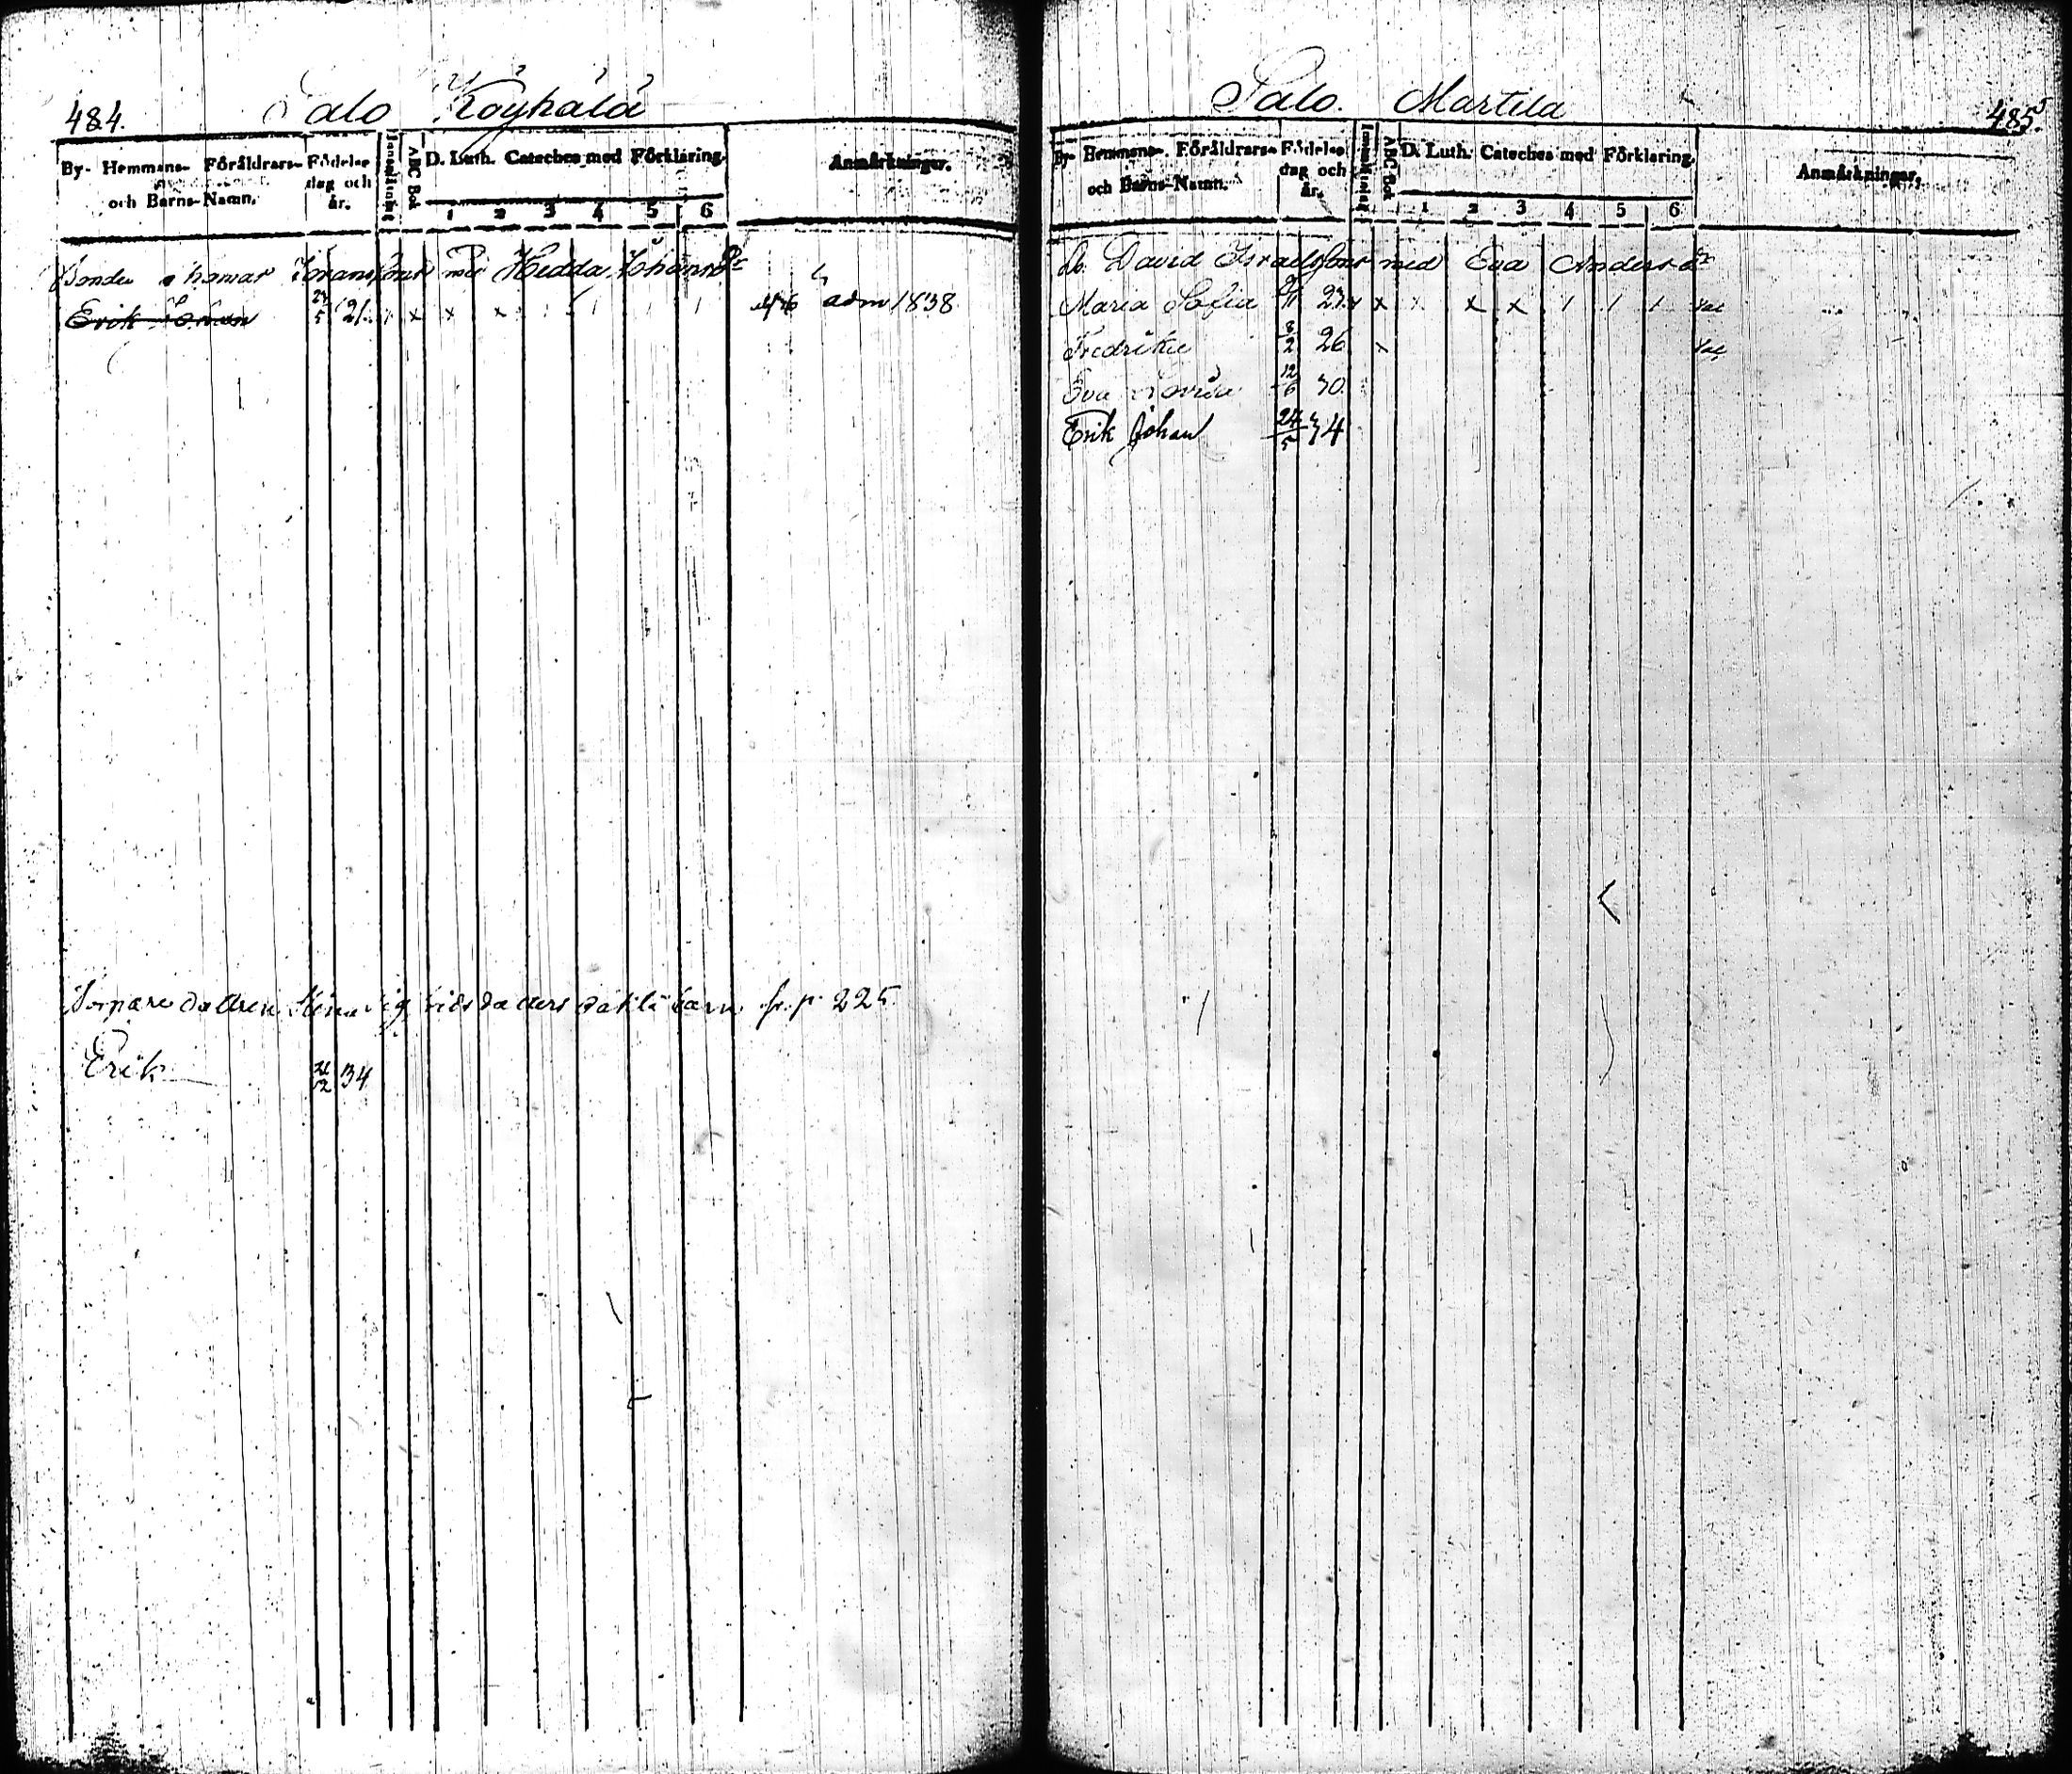 484. Salo Köyhälä
By- Hemmans- Föräldrars- och Barns-Namn. Födelse dag och år. Innanläsning ABC Bok D. Luth. Cateches med Förklaring. Anmärkningar.
1 2 3 4 5 6
Bonden Johansson med Hedda Johansdr
Erik Johan 24/5 21 x x x adm 1838
dotters barn fr. p. 225
Erik 21/12 34
Salo. Martila 485.
By- Hemmans- Föräldrars- och Barns-Namn. Födelse dag och år. Innanläsning ABC Bok D. Luth. Cateches med Förklaring. Anmärkningar.
1 2 3 4 5 6
Lb. David Israelsson med Eva Andersdr
Maria Sofia 23 x x x x 1 1 1
Fredrika 8/2 26 x
Eva Lovisa 12/6 30
Erik Johan 24/5 34